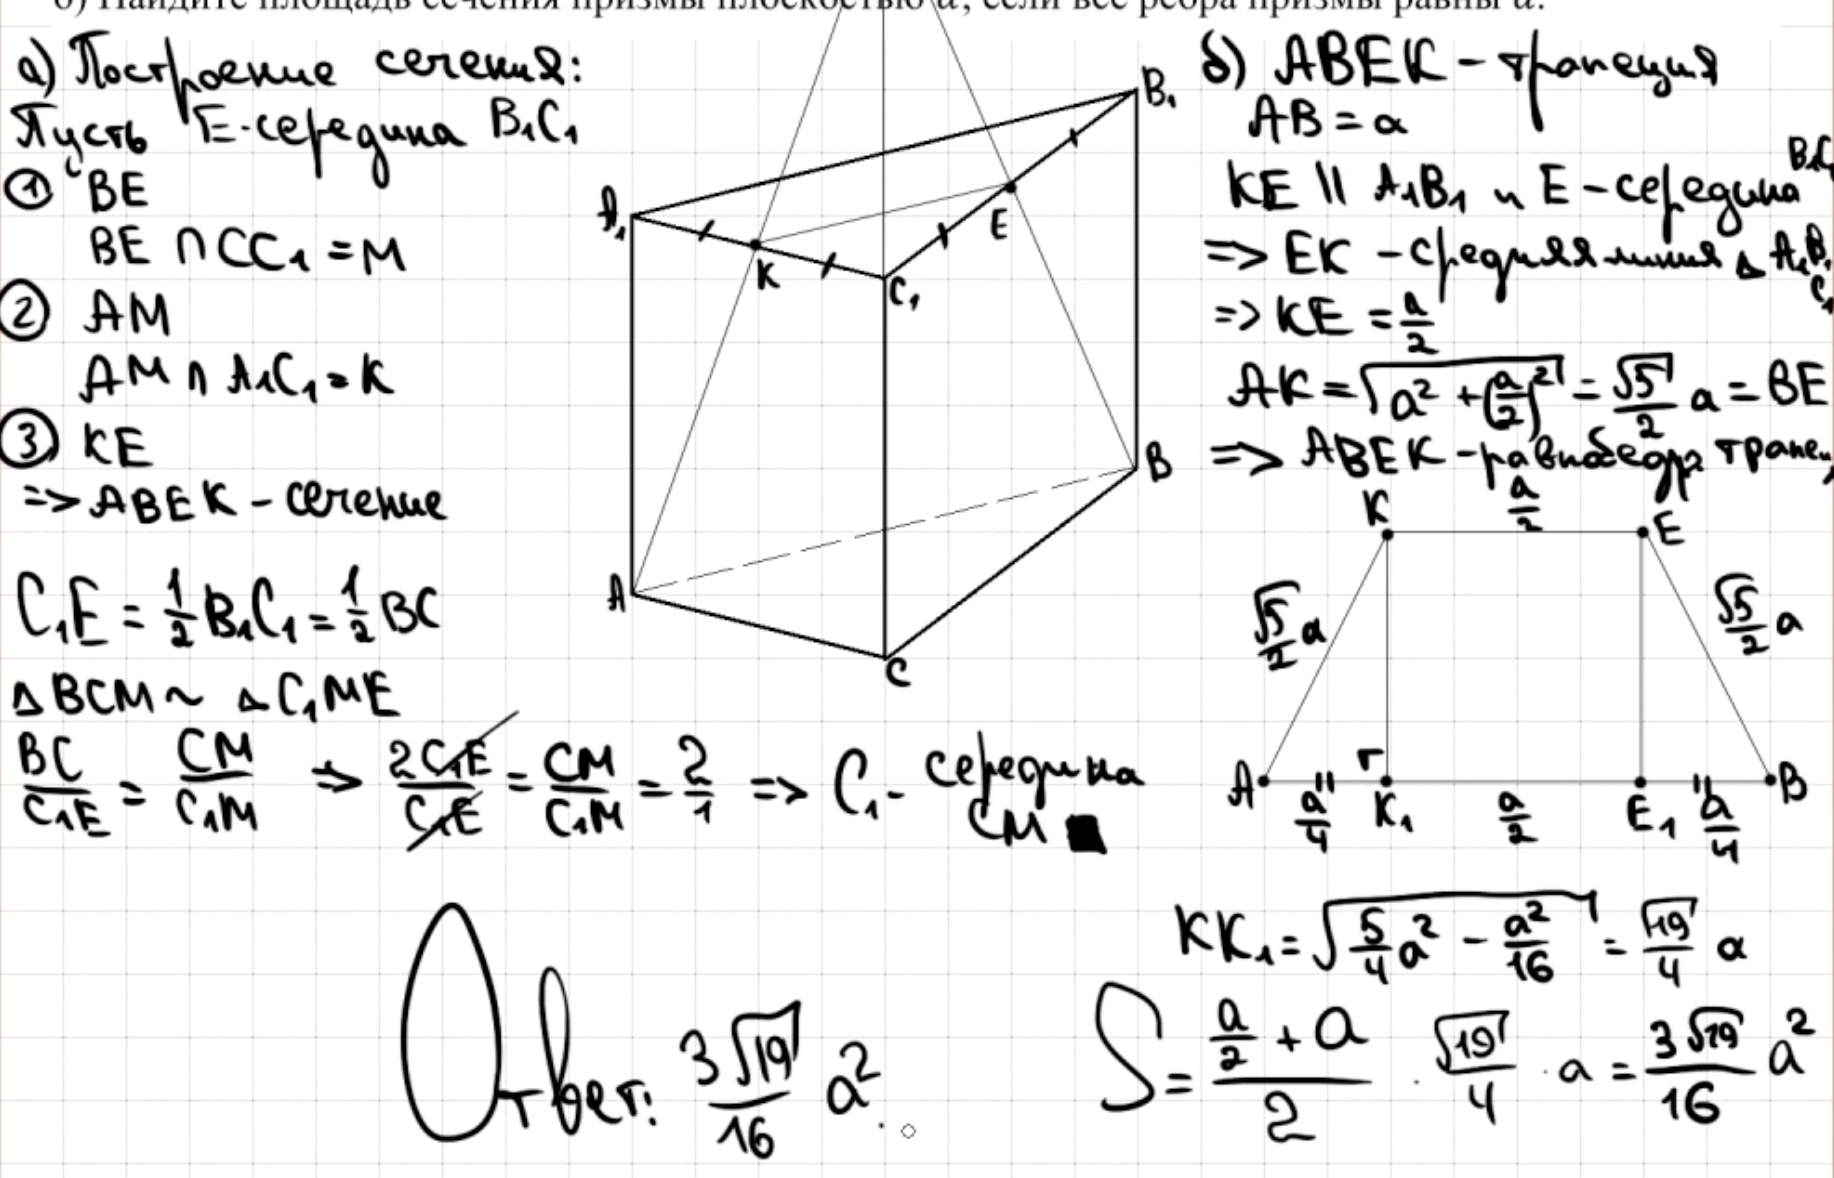 б) Найдите площадь сечения призмы плоскостью α, если все рёбра призмы равны a.
а) Построение сечения:
Пусть E-середина B₁C₁
① BE
BE ∩ CC₁ = M
② AM
AM ∩ A₁C₁ = K
③ KE
=> ABEK - сечение
C₁E = 1/2 B₁C₁ = 1/2 BC
△BCM ~ △C₁ME
BC/C₁E = CM/C₁M => 2C₁E/C₁E = CM/C₁M = 2/1 => C₁ - середина
CM ■
A₁
B₁
K
E
C₁
A
B
C
б) ABEK - трапеция
AB = a
KE || A₁B₁ и E - середина B₁C₁
=> EK - средняя линия △ A₁B₁C₁
=> KE = a/2
AK = √(a² + (a/2)²) = √5/2 a = BE
=> ABEK - равнобедр трапец
K
a/2
E
√5/2 a
√5/2 a
A
a/4
K₁
a/2
E₁
a/4
B
KK₁ = √(5/4 a² - a²/16) = √19/4 a
S = (a/2 + a)/2 · √19/4 · a = 3√19/16 a²
Ответ: 3√19/16 a².